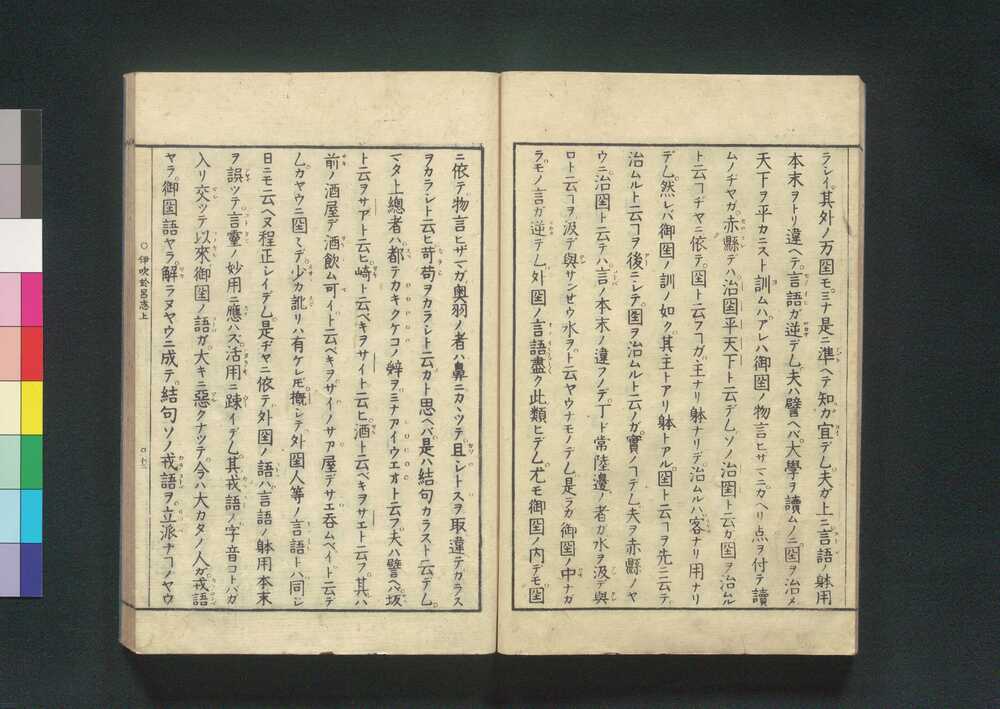 ラシイ其外ノ万国モミナ是ニ準ヘテ知ガ宜デム夫ガ上ニ言語ノ躰用
本末ヲトリ違ヘテ言語ガ逆デム夫ハ譬ヘバ大學ヲ讀ムノニ国ヲ治メ
天下ヲ平カニスト訓ムハアレハ御国ノ物言ヒザマニカヘリ点ヲ付テ讀
ムノヂヤガ赤縣デハ治国平天下ト云デムソノ治国ト云ガ国ヲ治ムル
ト云フヿヂヤニ依テ国ト云フヿガ主ナリ躰ナリデ治ムルハ客ナリ用ナリ
デム然レバ御国ノ訓ノ如ク其主トアリ躰トアル国ト云ヿヲ先ニ云テ
治ムルト云ヿヲ後ニシテ国ヲ治ムルト云ノガ實ノヿデム夫ヲ赤縣ノヤ
ウニ治国ト云テハ言ノ本末ノ違フノデ丁ド常陸邊ノ者ガ水ヲ汲デ與
ロト云ヿヲ汲デ與サンせウ水ヲト云ヤウナモノデム是ラガ御国ノ中ナガ
ラモノ言ガ逆デム外国ノ言語盡ク此類ヒデム尤モ御国ノ内デモ国
ニ依テ物言ヒザマガ奥羽ノ者ハ鼻ニカヽツテ且シトスヲ取違テカラス
ヲカラシト云ヒ苛苟ヲカラシト云カト思ヘバ是ハ結句カラスト云デム
マタ上總者ハ都テカキクケコノ辤ヲミナアイウエオト云フ夫ハ譬ヘバ坂
ト云ヲサアト云ヒ崎ト云ベキヲサイト云ヒ酒ト云ベキヲサエト云フ其ハ
前ノ酒屋デ酒飲ム可イト云ベキヲサイノサア屋デサエ呑ムベイト云テ
ムカヤウニ国々デ少カ訛リハ有ケレ𪜈概シテ外国人等ノ言語トハ同シ
日ニモ云ヘヌ程正シイデム是ヂヤニ依テ外国ノ語ハ言語ノ躰用本末
ヲ誤ツテ言霊ノ妙用ニ應ハズ活用ニ踈イデム其戎語ノ字音コトバガ
入リ交ツテ以來御国ノ語ガ大キニ惡クナツテ今ハ大カタノ人ガ戎語
ヤラ御国語ヤラ解ラヌヤウニ成テ結句ソノ戎語ヲ立派ナヿノヤウ
○伊吹於呂志上